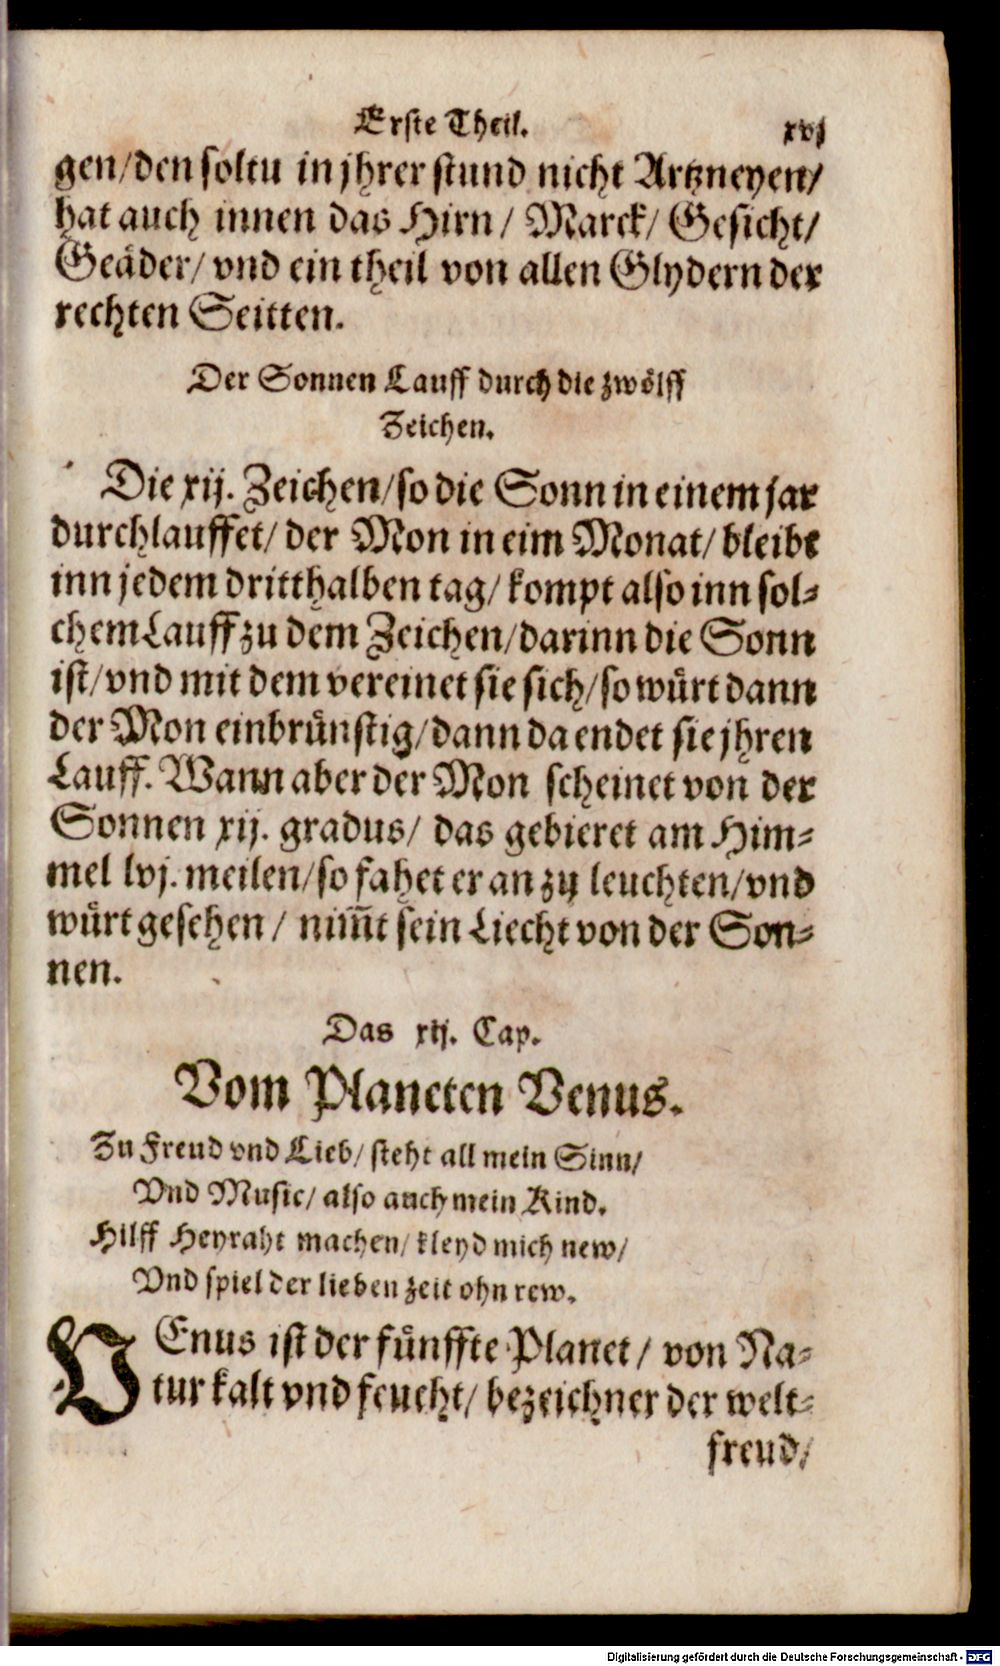 Erste Theil. xvj
gen/den soltu in jhrer stund nicht Artzneyen/
hat auch innen das Hirn/ Marck/ Gesicht/
Geäder/ vnd ein theil von allen Glydern der
rechten Seitten.
Der Sonnen Lauff durch die zwölff
Zeichen.
Die xij. Zeichen/so die Sonn in einem jar
durchlauffet/ der Mon in eim Monat/ bleibt
inn jedem dritthalben tag/ kompt also inn sol⸗
chem Lauff zu dem Zeichen/darinn die Sonn
ist/vnd mit dem vereinet sie sich/so würt dann
der Mon einbrünstig/dann da endet sie jhren
Lauff. Wann aber der Mon scheinet von der
Sonnen xij. gradus/ das gebieret am Him⸗
mel lvj. meilen/so fahet er an zu leuchten/vnd
würt gesehen/ nim̃t sein Liecht von der Son⸗
nen.
Das xij. Cap.
Vom Planeten Venus.
Zu Freud vnd Lieb/ steht all mein Sinn/
Vnd Music/ also auch mein Kind.
Hilff Heyraht machen/ kleyd mich new/
Vnd spiel der lieben zeit ohn rew.
VEnus ist der fünffte Planet/ von Na⸗
tur kalt vnd feucht/ bezeichner der welt⸗
freud/
Digitalisierung gefördert durch die Deutsche Forschungsgemeinschaft - DFG